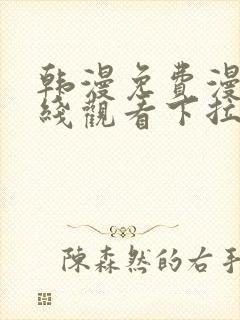 韩漫免費漫
綫觀看下拉
陳森然的右手